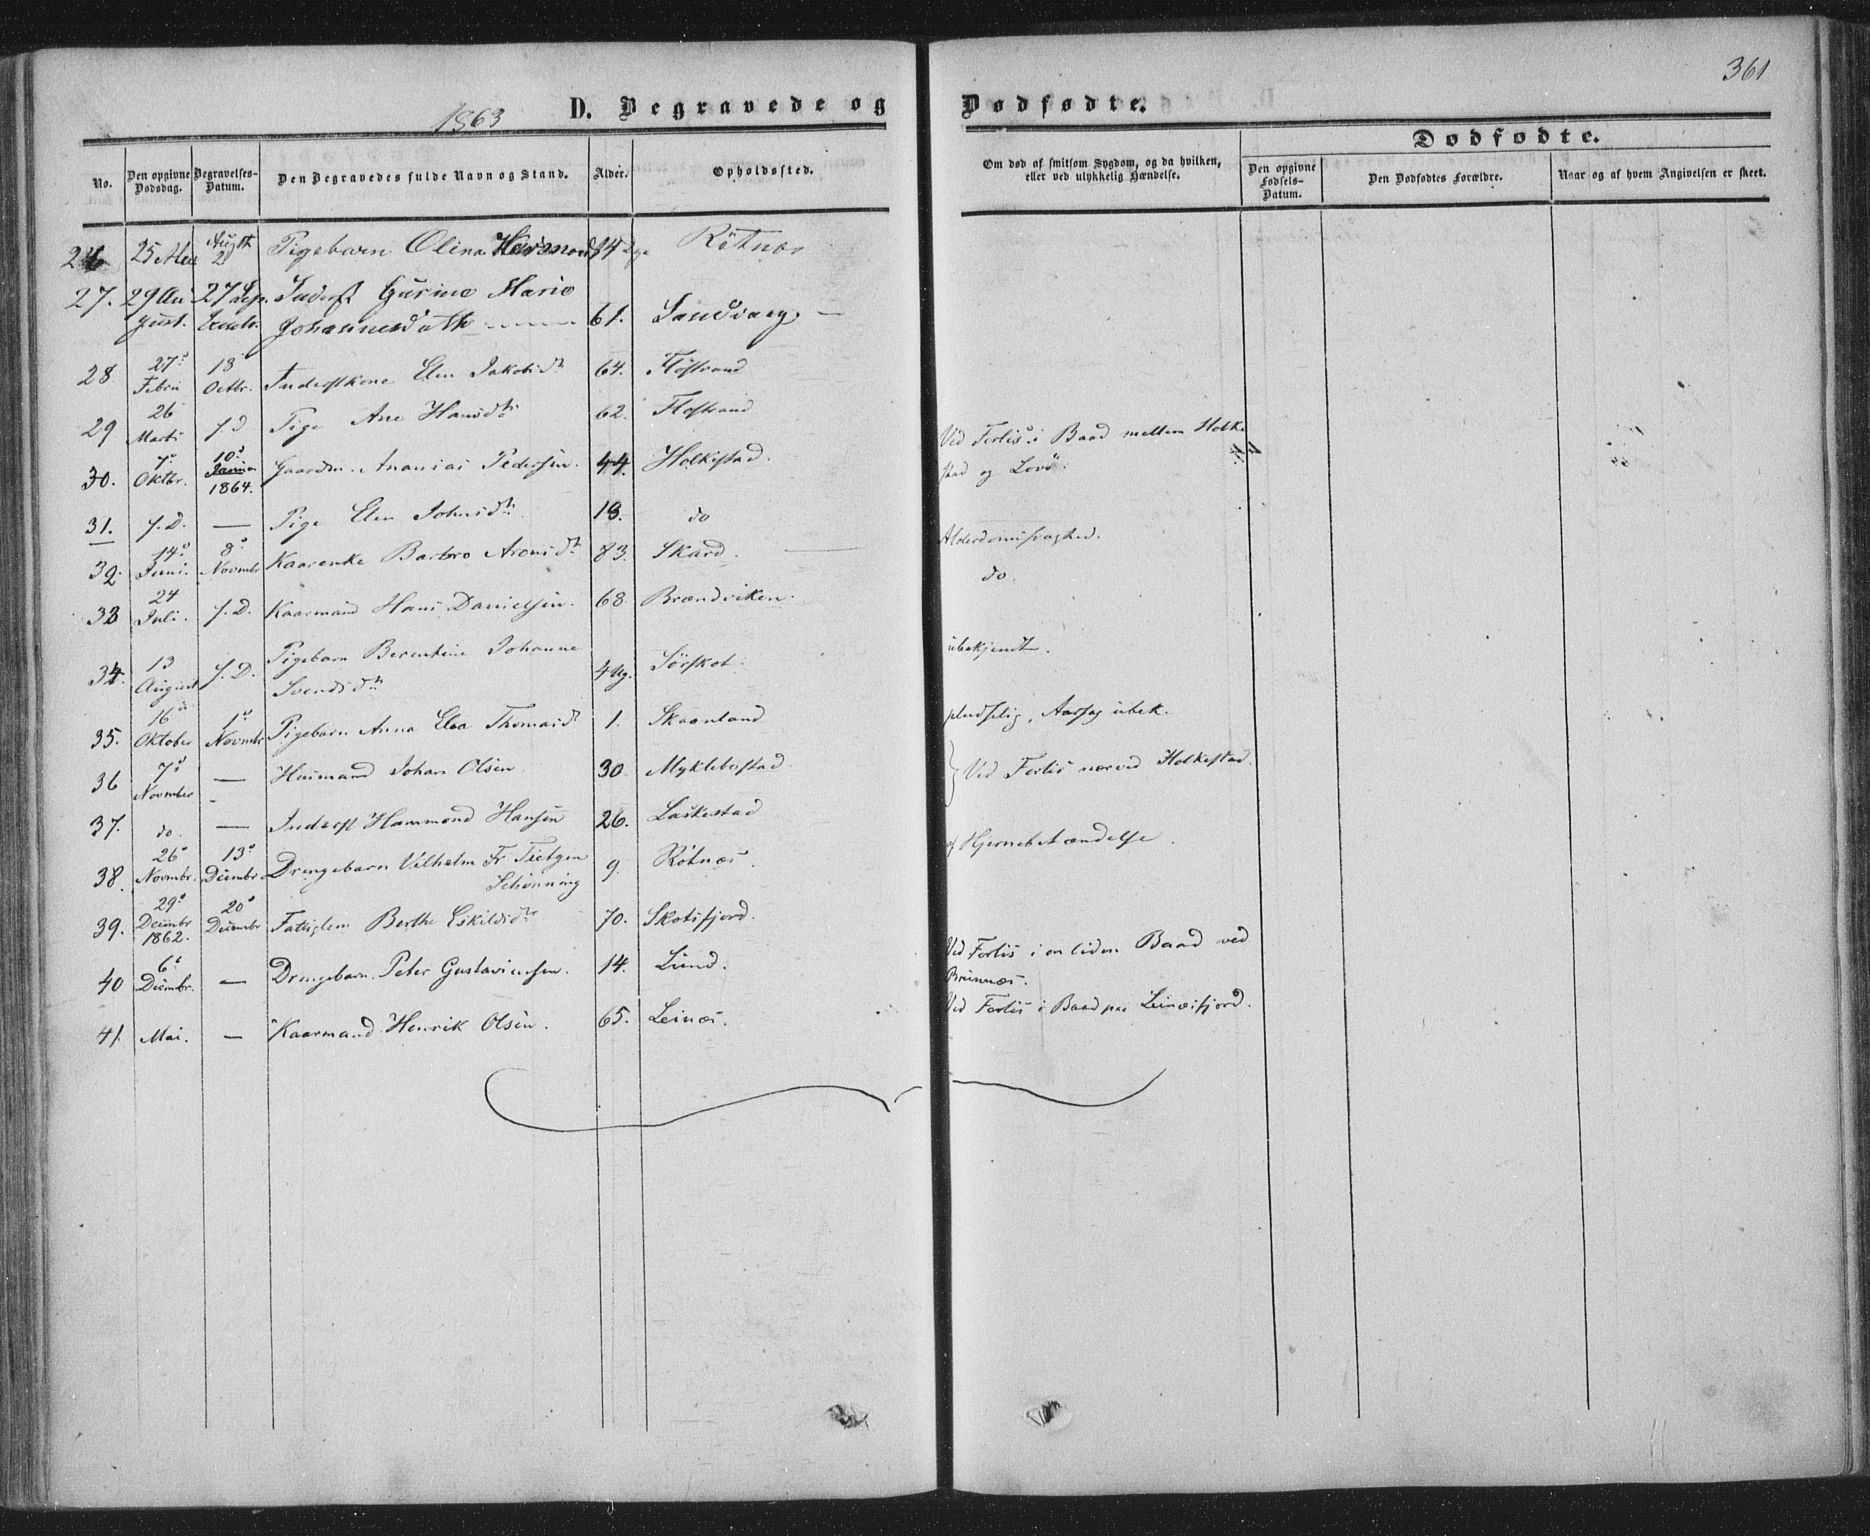 361
1863 D. Begravede og Dødfødte.
Dødfødte.
No. Den opgivne Dødsdag. Begravelses-Datum. Den Begravedes fulde Navn og Stand. Alder. Opholdssted. Om død af smitsom Sygdom, og da hvilken, eller ved ulykkelig Hændelse. Den opgivne Fødsels-Datum. Den Dødfødtes Forældre. Naar og af hvem Angivelsen er skeet.
26 25 Augst 2 Pigebarn Olina 14 Dge Rötnæs
27. 29 Au 27 Sep. Inderst Gurine Marie
gust. Johannesdatter 61. Sandvaag
28 27de Febru 13 Octbr. Inderstkone Elen Jakobsdtr 64. Flostrand
29 26 Marts s.D Pige Ane Hansdtr 62. Flostrand
30. 7de Oktbr. 10de Januar 1864. Gaardm. Ananias Pedersen. 44. Holkestad. Ved Forlis i Baad mellem Holkestad og Lovö.
31. s.D. — Pige Elen Johnsdtr 18. do
32. 14de Juni. 8de Novmbr Kaarenke Barbro Aronsdtr 83. Skard. Alderdomssvaghed.
33 24 Juli. s.D. Kaarmand Hans Danielsen. 68. Brændviken. do.
34. 13 August s.D. Pigebarn Berentine Johanne
Svendsdtr 4 Ug. Sörskot. ubekjendt.
35. 16de Oktober 1ste Novmbr Pigebarn Anna Elea Thomasdtr 1. Skaanland pludselig, Aarsag ubek.
36 7de Novmber — Husmand Johan Olsen. 30. Myklebostad. Ved Forlis nærved Holkestad
37. do. — Inderst Hammond Hansen 26. Laskestad
38. 26de Novmbr. 13de Decmbr Drengebarn Vilhelm Fr Tietgen
Schønning 9. Rötnæs. af Hjernebetændelse.
39. 29de Decmbr 1862. 20de Decmbr Fatiglem Berthe Eskildsdtr 70. Skotsfjord.
40 6te Decmbr. — Drengebarn Peter Gustavinsen. 14. Lund. Ved Forlis i en liden Baad ved Brunnæs.
41. Mai. — Kaarmand Henrik Olsen. 65. Leinæs. Ved Forlis i Baad paa Leinæsfjord.